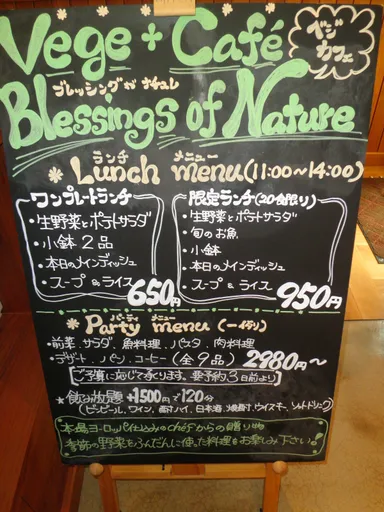 Vege + Café
ベジカフェ
ブレッシングオブナチュレ
Blessings of Nature
ランチ メニュー
* Lunch menu (11:00~14:00)
ワンプレートランチ
・生野菜とポテトサラダ
・小鉢2品
・本日のメインディッシュ
・スープ&ライス
650円
限定ランチ(20食限り)
・生野菜とポテトサラダ
・旬のお魚
・小鉢
・本日のメインディッシュ
・スープ&ライス
950円
パーティ メニュー
* Party menu (一例)
・前菜.サラダ.魚料理.パスタ.肉料理
・デザート.パン.コーヒー(全9品) 2980円~
[ご予算に応じて承ります。要予約3日前より]
* 飲み放題 +1500円で120分
(ビンビール、ワイン、酎ハイ、日本酒、焼酎、ウイスキー、ソフトドリンク)
本場ヨーロッパ仕込みのchefからの贈り物
季節の野菜をふんだんに使った料理をお楽しみ下さい!